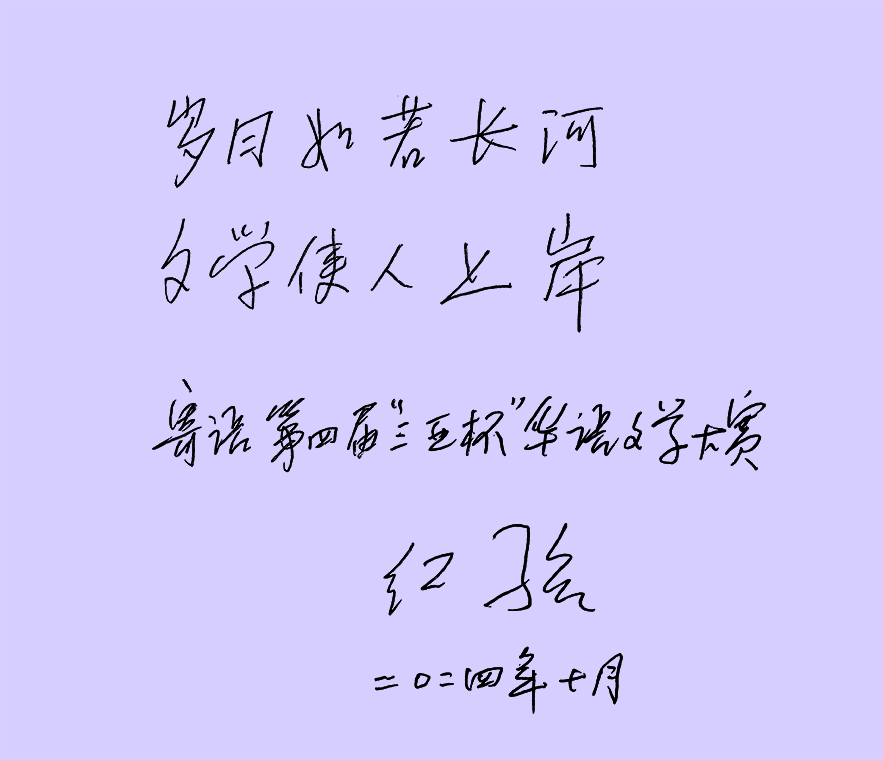 岁月如若长河
文学使人上岸
寄语第四届“三亚杯”华语文学大赛
红孩
二〇二四年七月